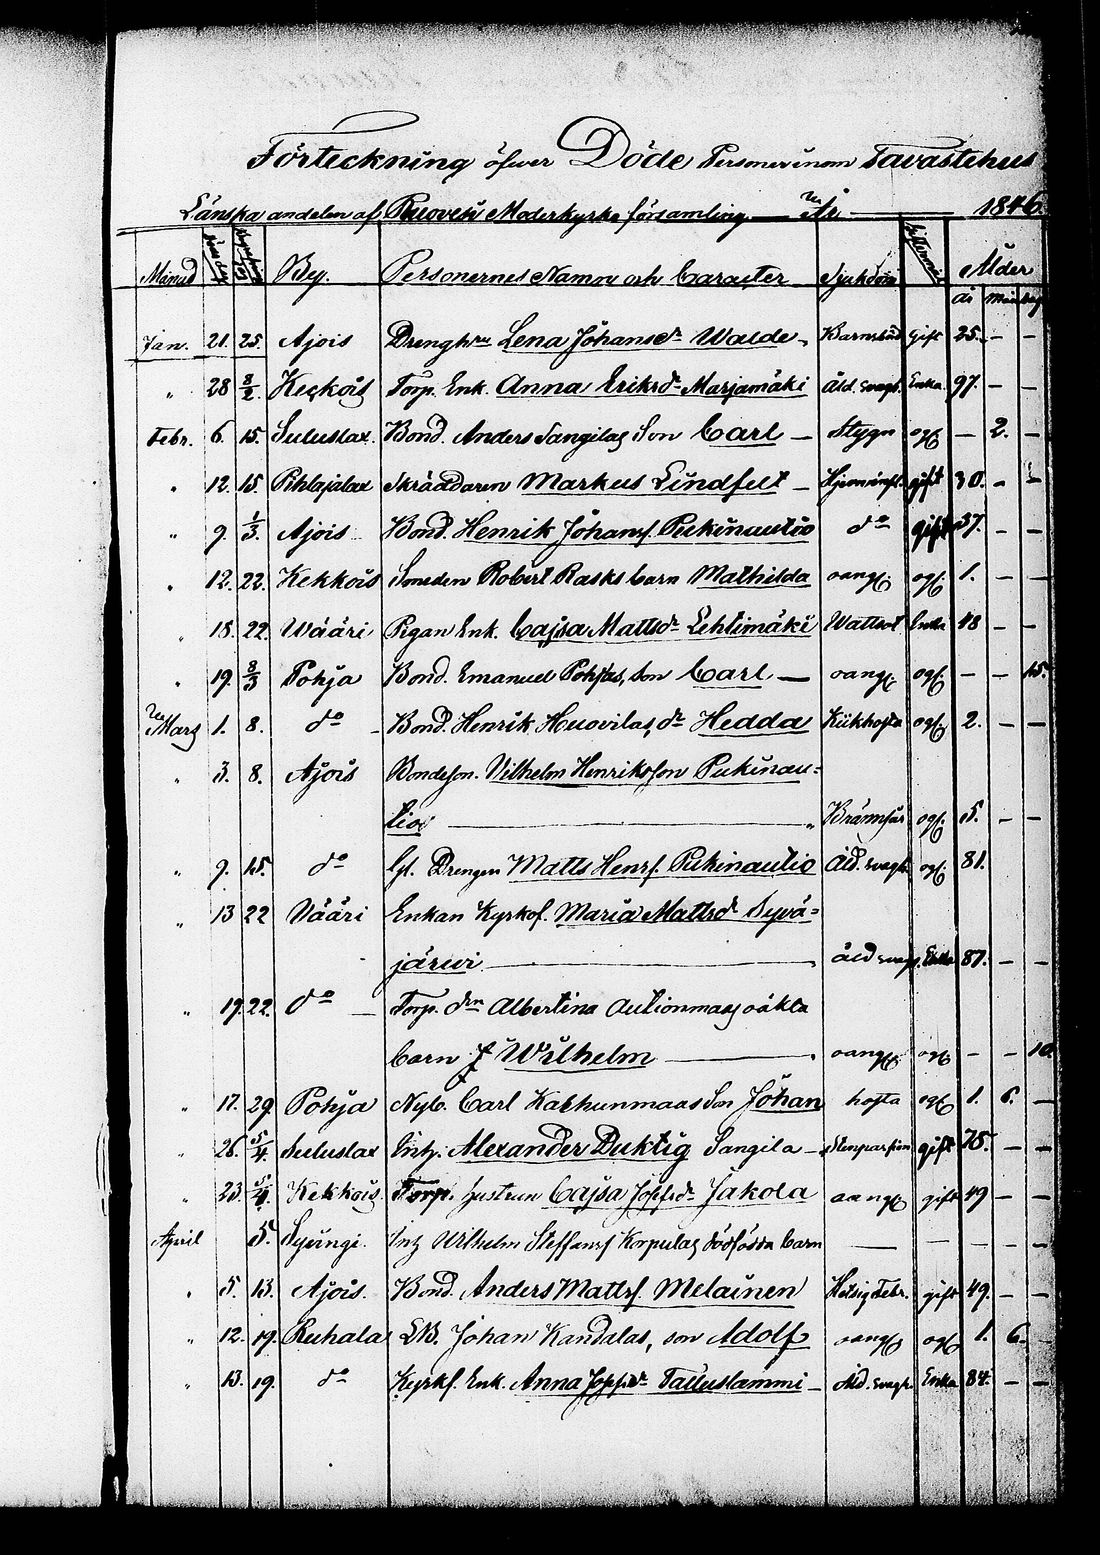 Förteckning öfwer Döde Personer inom Tavastehus
Länska andelen af Ruovesi Moderkyrko församling År 1846.
Månad By. Personernes Namn och Caracter Sjukdom Ålder
år mån dag
Jan. 21. 25. Ajois Drengh Lena Johansdr Walde Barnsbäd gift 25. — —
" 28 8/2. Kekkois Torp. Enk. Anna Eriksdr Marjamäki åld. svagh. Enka 97. — —
Febr. 6. 15. Suluslax. Bond. Anders Sangilas Son Carl — Stygn ogf — 2. —
" 12. 15. Pihlajalax Skräddaren Markus Lindfelt — gift 30. — —
" 9. 1/3 Ajois Bond. Henrik Johansf. Pukinautio do gift 37. — —
" 12. 22. Kekkois Smeden Robert Rasks barn Mathilda oangf. ogf. 1. — —
" 18. 22. Wääri Pigan Enk. Cajsa Mattsdr Lehtimäki Wattsot Enka 48 — —
" 19. 8/3 Pohja Bond. Emanuel Pohjas, son Carl — oangf. ogf. — — 15.
Mars 1. 8. do Bond. Henrik Huovilas, dr Hedda Kikhosta ogf. 2. — —
" 3. 8. Ajois Bondeson. Vilhelm Henriksson Pukinau=
tio — " Brännsår ogf. 5. — —
" 9. 15. do Gl. Drengen Matts Henrf. Pukinautio åld. svagh. ogf. 81.
" 13 22 Vääri Enkan Kyrkof. Maria Mattsdr Syvä=
järwi — åld svagh. Enka 87. — —
" 19. 22. do Torp. drn Albertina Autionmaas oäkta
barn f Wilhelm — oangf ogf — — 10.
" 17. 29. Pohja Nyb. Carl Karhunmaas Son Johan hosta ogf 1. 6. —
" 26. 5/4. Suluslax Inhj. Alexander Duktig Sangila — Stenpassion gift 75. — —
" 23. 5/4. Kekkois Torp. hustrun Cajsa Josefsdr Jakola oangf gift 49 — —
April 5. Syvingi. Inh Wilhelm Steffansf Korpulas dödfödda barn — — — —
" 5. 13. Ajois. Bond. Anders Mattsf. Melainen Hetsig Febr. gift 49. — —
" 12. 19. Ruhala Johan Kandalas, son Adolf oangf ogf 1. 6. —
" 13. 19. do Kyrkf. Enk. Anna Josefsdr Talluslammi — åld. svagh. Enka 84. — —